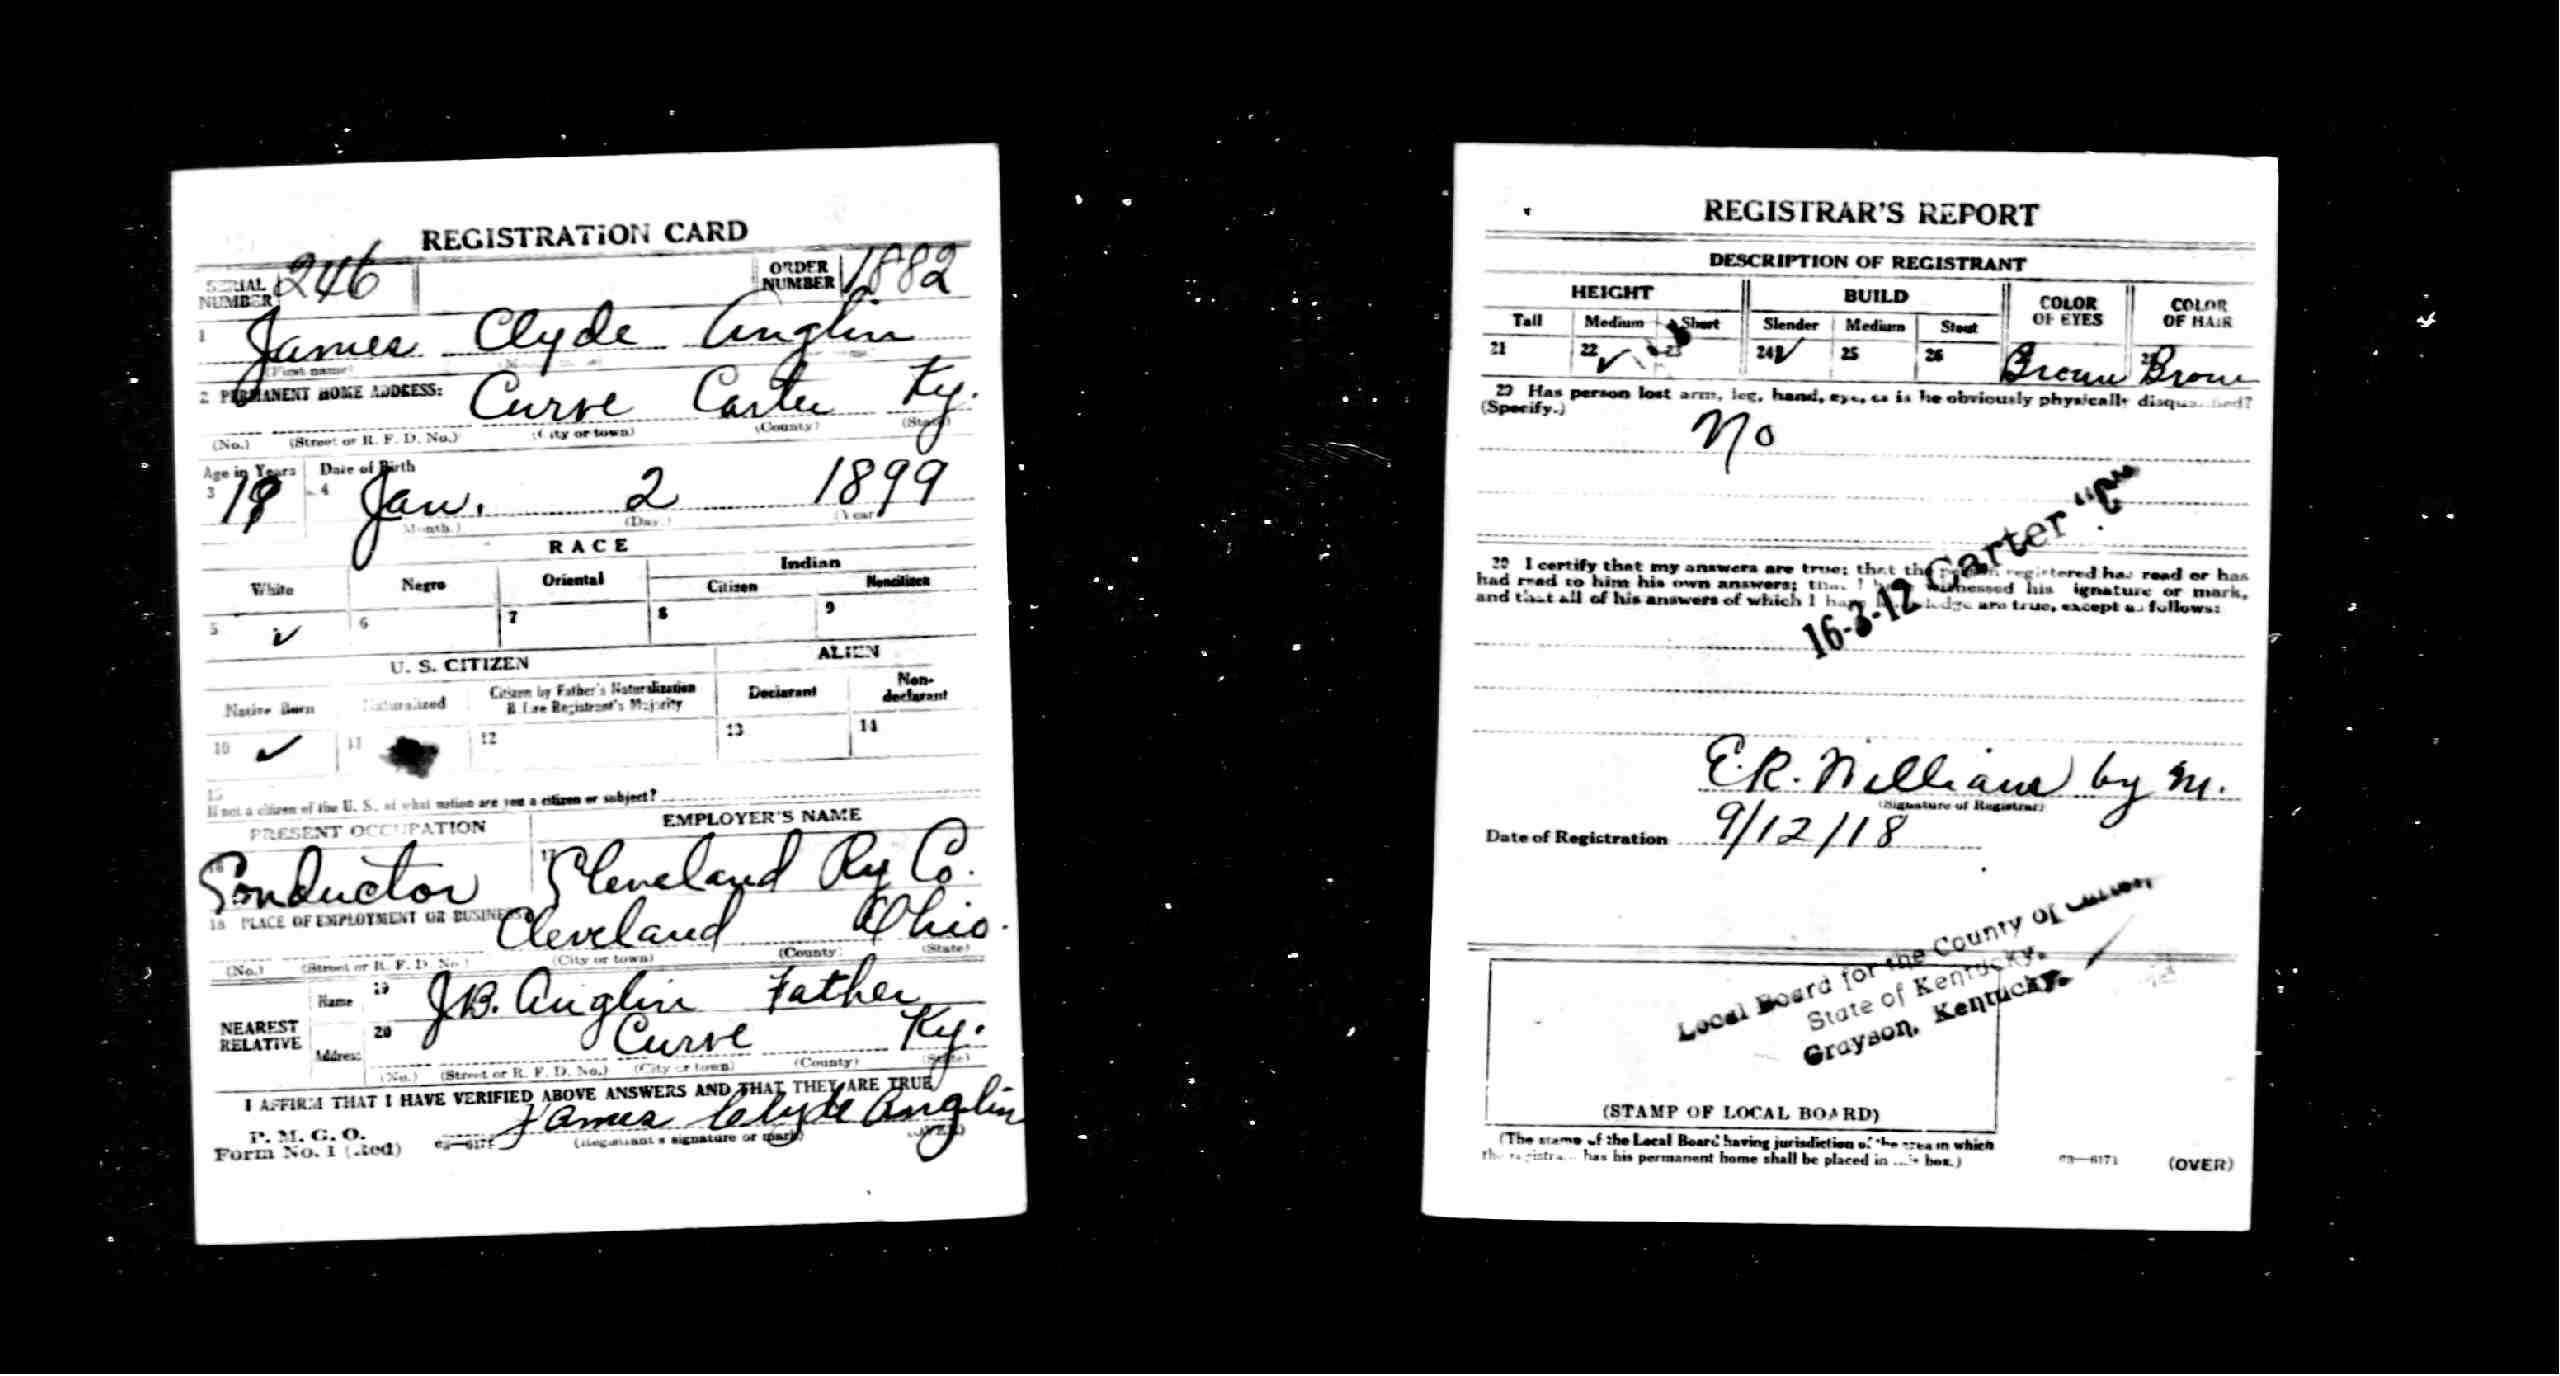 REGISTRATION CARD
SERIAL NUMBER 246 ORDER NUMBER 1882
1 James Clyde Anglin
(First name)
2 PERMANENT HOME ADDRESS: Curve Carter Ky.
(No.) (Street or R. F. D. No.) (City or town) (County) (State)
Age in Years Date of Birth
3 19 4 Jan. 2 1899
(Month.) (Day.) (Year
RACE
White Negro Oriental Indian
Citizen Noncitizen
5 ✓ 6 7 8 9
U. S. CITIZEN ALIEN
Native Born Naturalized Citizen by Father's Naturalization Before Registrant's Majority Declarant Non-declarant
10 ✓ 11 12 13 14
15
If not a citizen of the U. S. of what nation are you a citizen or subject?
PRESENT OCCUPATION EMPLOYER'S NAME
16 Conductor 17 Cleveland Ry Co.
18 PLACE OF EMPLOYMENT OR BUSINESS: Cleveland Ohio.
(No.) (Street or R. F. D. No.) (City or town) (County) (State)
NEAREST RELATIVE Name 19 J.B. Anglin Father
Address 20 Curve Ky.
(No.) (Street or R. F. D. No.) (City or town) (County) (State)
I AFFIRM THAT I HAVE VERIFIED ABOVE ANSWERS AND THAT THEY ARE TRUE
P. M. G. O.
Form No. 1 (Red) 03—6171 James Clyde Anglin
(Registrant's signature or mark) (OVER)
REGISTRAR'S REPORT
DESCRIPTION OF REGISTRANT
HEIGHT BUILD COLOR OF EYES COLOR OF HAIR
Tall Medium Short Slender Medium Stout
21 22 ✓ 23 24 ✓ 25 26 Brown 28 Brown
29 Has person lost arm, leg, hand, eye, or is he obviously physically disqualified?
(Specify.)
No
16-3-12 Carter "C"
30 I certify that my answers are true; that the person registered has read or has
had read to him his own answers; that I have witnessed his signature or mark,
and that all of his answers of which I have knowledge are true, except as follows:
E.R. Williams by M.
(Signature of Registrar)
Date of Registration 9/12/18
Local Board for the County of Carter,
State of Kentucky.
Grayson, Kentucky.
(STAMP OF LOCAL BOARD)
(The stamp of the Local Board having jurisdiction of the area in which
the registrant has his permanent home shall be placed in this box.)
03—6171 (OVER)